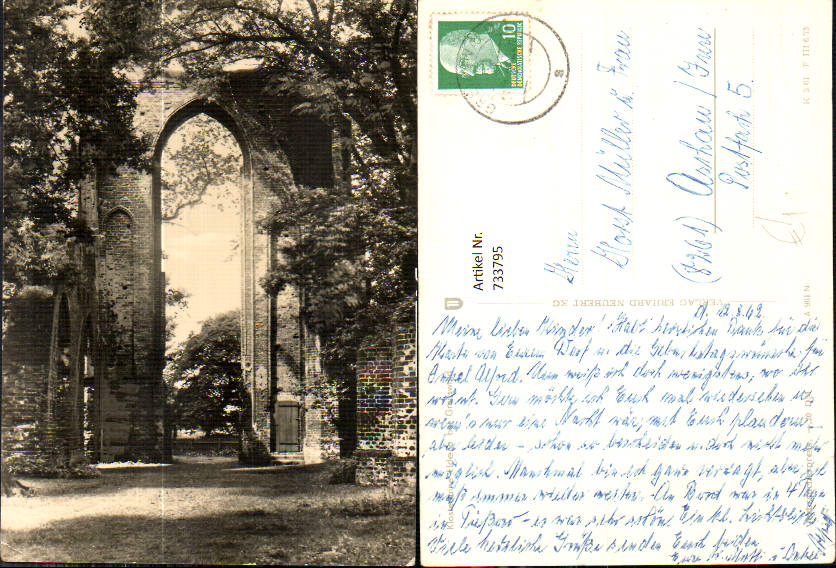 10
DEUTSCHE
DEMOKRATISCHE REPUBLIK
Herrn
Horst Müller u. Frau
(8261) Aschau / Inn
Postfach 5.
Artikel Nr.
733795
VERLAG ERHARD NEUBERT KG
K 3/61 F III 6/13
12.8.62
Meine lieben Kinder! Habt herzlichen Dank für die
Karte von Eurem Dorf u. die Geburtstagswünsche für
Onkel Alfred. Nun weiß ich doch wenigstens, wo Ihr
wohnt. Gern möchte ich Euch mal wiedersehen u.
wenn's nur eine Nacht wär, mit Euch plaudern,
aber leider - schon so bescheiden u. doch nicht mehr
möglich. Manchmal bin ich ganz verzagt, aber
muß immer wieder weiter. An Bord war in 4 Tagen
in - es war sehr schön. Einkl.
Viele herzliche Grüße senden Euch beiden
Eure Mutti u. Onkel